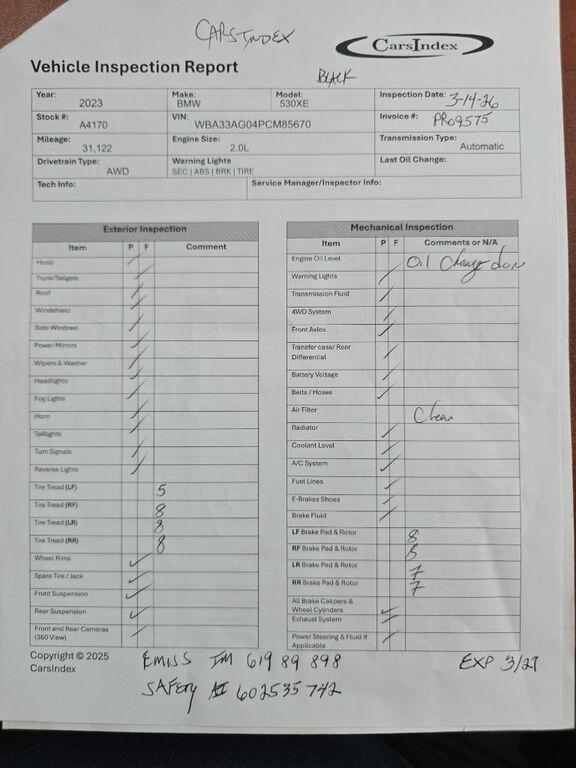 CARSINDEX
CarsIndex
Vehicle Inspection Report
BLACK
Year: 2023 Make: BMW Model: 530XE Inspection Date: 3-14-26
Stock #: A4170 VIN: WBA33AG04PCM85670 Invoice #: PR09575
Mileage: 31,122 Engine Size: 2.0L Transmission Type: Automatic
Drivetrain Type: AWD Warning Lights SEC | ABS | BRK | TIRE Last Oil Change:
Tech Info: Service Manager/Inspector Info:
Exterior Inspection
Item P F Comment
Hood
Trunk/Tailgate
Roof
Windshield
Side Windows
Power Mirrors
Wipers & Washer
Headlights
Fog Lights
Horn
Taillights
Turn Signals
Reverse Lights
Tire Tread (LF) 5
Tire Tread (RF) 8
Tire Tread (LR) 8
Tire Tread (RR) 8
Wheel Rims
Spare Tire / Jack
Front Suspension
Rear Suspension
Front and Rear Cameras
(360 View)
Mechanical Inspection
Item P F Comments or N/A
Engine Oil Level Oil Change done
Warning Lights
Transmission Fluid
4WD System
Front Axles
Transfer case/ Rear
Differential
Battery Voltage
Belts / Hoses
Air Filter Clean
Radiator
Coolant Level
A/C System
Fuel Lines
E-Brakes Shoes
Brake Fluid
LF Brake Pad & Rotor 8
RF Brake Pad & Rotor 8
LR Brake Pad & Rotor 7
RR Brake Pad & Rotor 7
All Brake Calipers &
Wheel Cylinders
Exhaust System
Power Steering & Fluid if
Applicable
Copyright © 2025
CarsIndex
EMISS IM 619 89 898 EXP 3/27
SAFETY AI 602535742